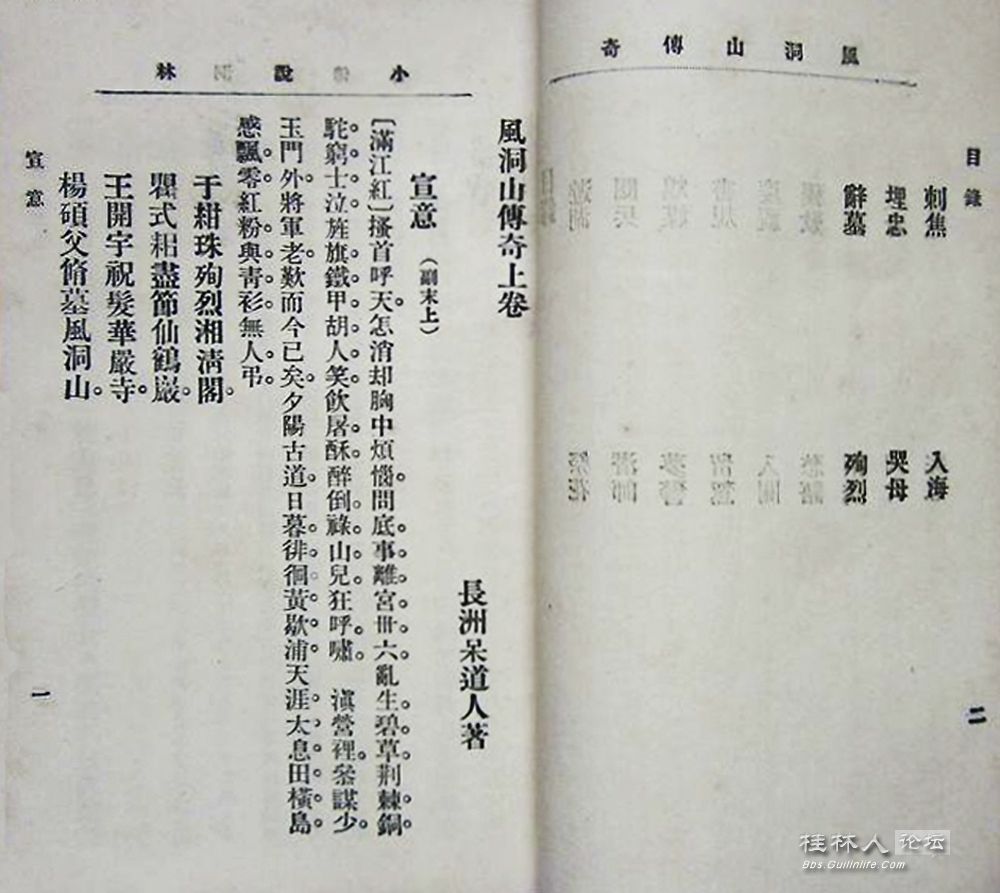 風洞山傳奇
目錄
刺焦 入海
埋忠 哭母
辭墓 殉烈
二
小說林
風洞山傳奇上卷
長洲呆道人著
宣意 (副末上)
〔滿江紅〕搔首呼天。怎消却胸中煩惱。問底事離宮卅六。亂生碧草。荆棘銅
駝。窮士泣。旌旗鐵甲胡人笑。飲屠酥醉倒。祿山兒。狂呼嘯。 滇營裡。參謀少。
玉門外。將軍老。歎而今已矣。夕陽古道。日暮徘徊黃歇浦。天涯太息田橫島。
感飄零紅粉與靑衫。無人弔。
于紺珠殉烈湘淸閣。
瞿式耜盡節仙鶴巖。
王開宇祝髮華嚴寺。
楊碩父脩墓風洞山。
宣意
一
桂林人论坛
Bbs.Guilinlife.Com